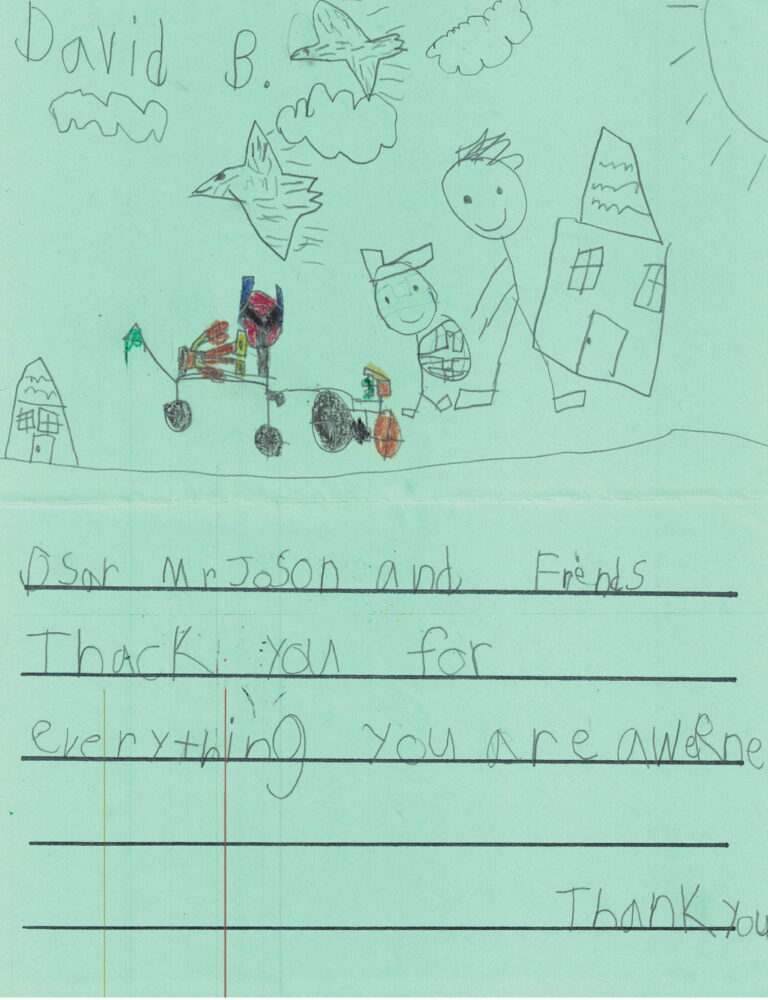 David B.
Dsar Mr Jason and Friends
Thack you for
everything you are aweRne
Thank you